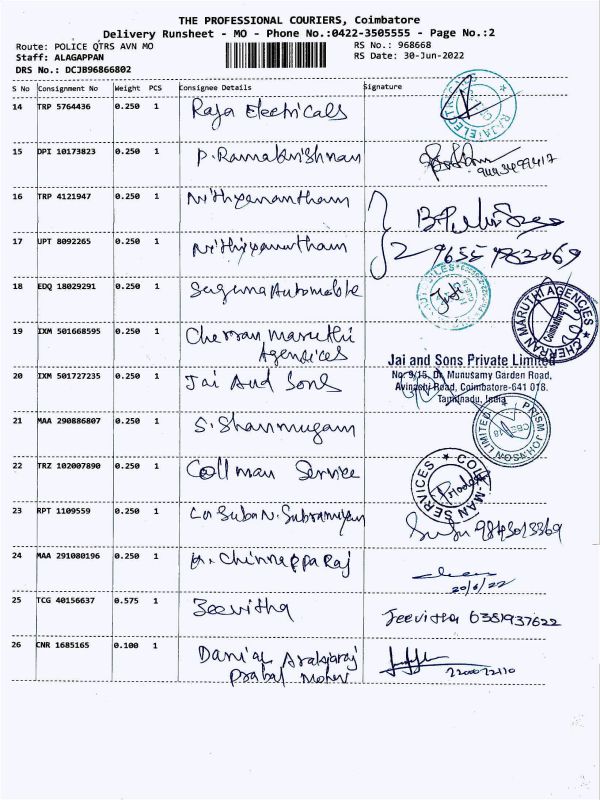 THE PROFESSIONAL COURIERS, Coimbatore
Delivery Runsheet - MO - Phone No.:0422-3505555 - Page No.:2
Route: POLICE QTRS AVN MO
RS No.: 968668
Staff: ALAGAPPAN
RS Date: 30-Jun-2022
DRS No.: DCJB96866802
S No Consignment No Weight PCS Consignee Details Signature
14 TRP 5764436 0.250 1 Raja Electricals
RAJA ELECTRI
15 DPI 10173823 0.250 1 P. Ramakrishnan
16 TRP 4121947 0.250 1 Nithyanantham
17 UPT 8092265 0.250 1 Nithiyanantham
18 EDQ 18029291 0.250 1 Suguna Automobile
19 IXM 501668595 0.250 1 Cherran Maruthi
Agencices
CHERRAN MARUTHI AGENCIES
Coimbatore-18
Jai and Sons Private Limited
No: 9/15, Dr. Munusamy Garden Road,
Avinashi Road, Coimbatore-641 018.
Tamilnadu, India
20 IXM 501727235 0.250 1 Jai And Sons
21 MAA 290886807 0.250 1 S. Shanmugam
PRISM JOHNSON LIMITED
CBE-18
22 TRZ 102007890 0.250 1 Coll man Service
COLL-MAN SERVICES
23 RPT 1109559 0.250 1
24 MAA 291080196 0.250 1 Chinnappa Raj
20/6/22
25 TCG 40156637 0.575 1 Jeevitha Jeevitha 6381937622
26 CNR 1685165 0.100 1 Danial